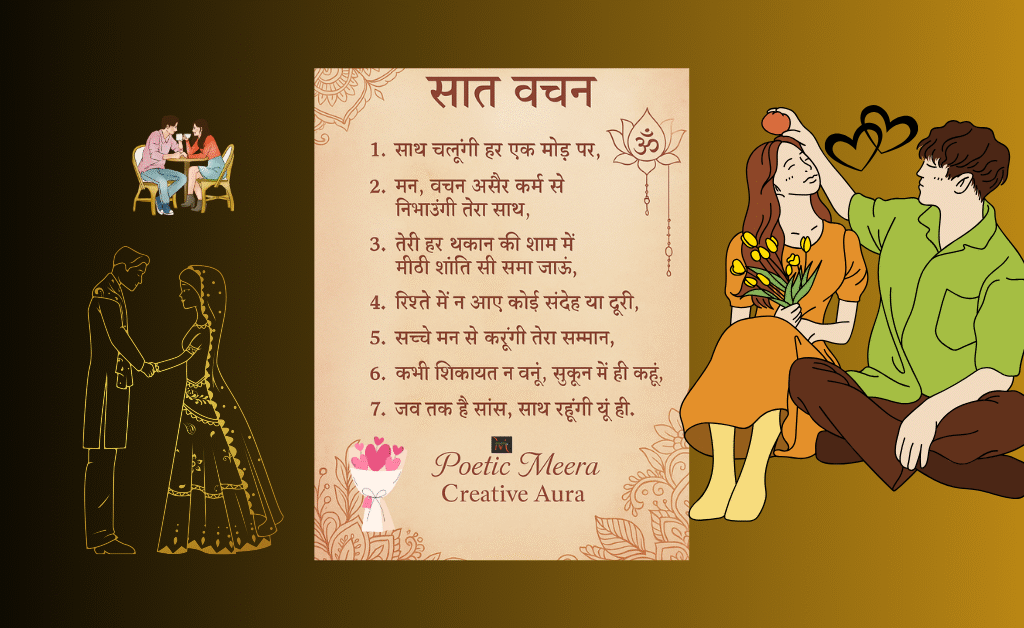 सात वचन
1. साथ चलूंगी हर एक मोड़ पर,
2. मन, वचन असैर कर्म से
निभाउंगी तेरा साथ,
3. तेरी हर थकान की शाम में
मीठी शांति सी समा जाऊं,
4. रिश्ते में न आए कोई संदेह या दूरी,
5. सच्चे मन से करूंगी तेरा सम्मान,
6. कभी शिकायत न वनूं, सुकून में ही कहूं,
7. जव तक है सांस, साथ रहूंगी यूं ही.
ॐ
Poetic Meera
Creative Aura